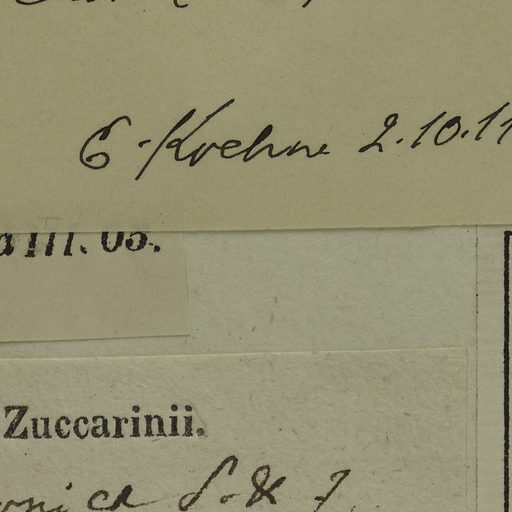 E. Koehne 2.10.11
III. 03.
Zuccarinii.
onica S. & Z.